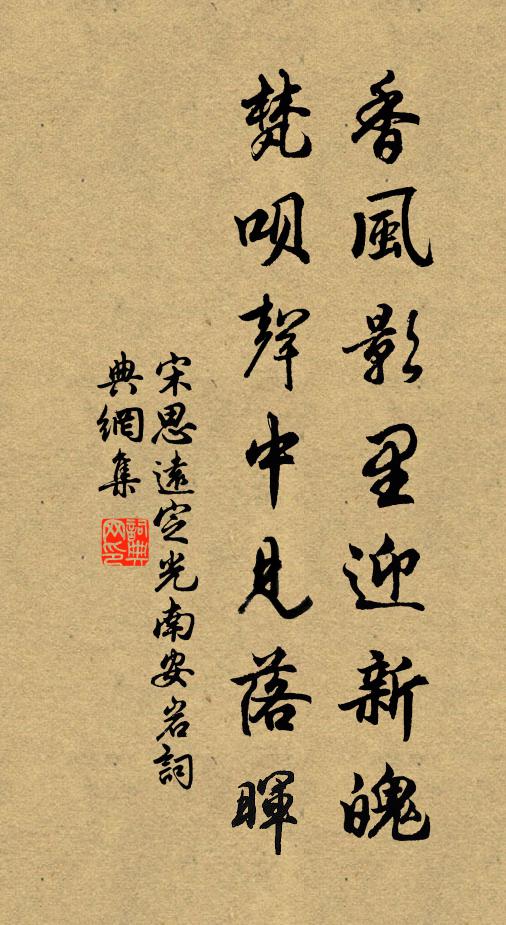 香風影里迎新魄
梵唄聲中見落暉
宋思遠定光南安岩詞
典網集
詞典網印